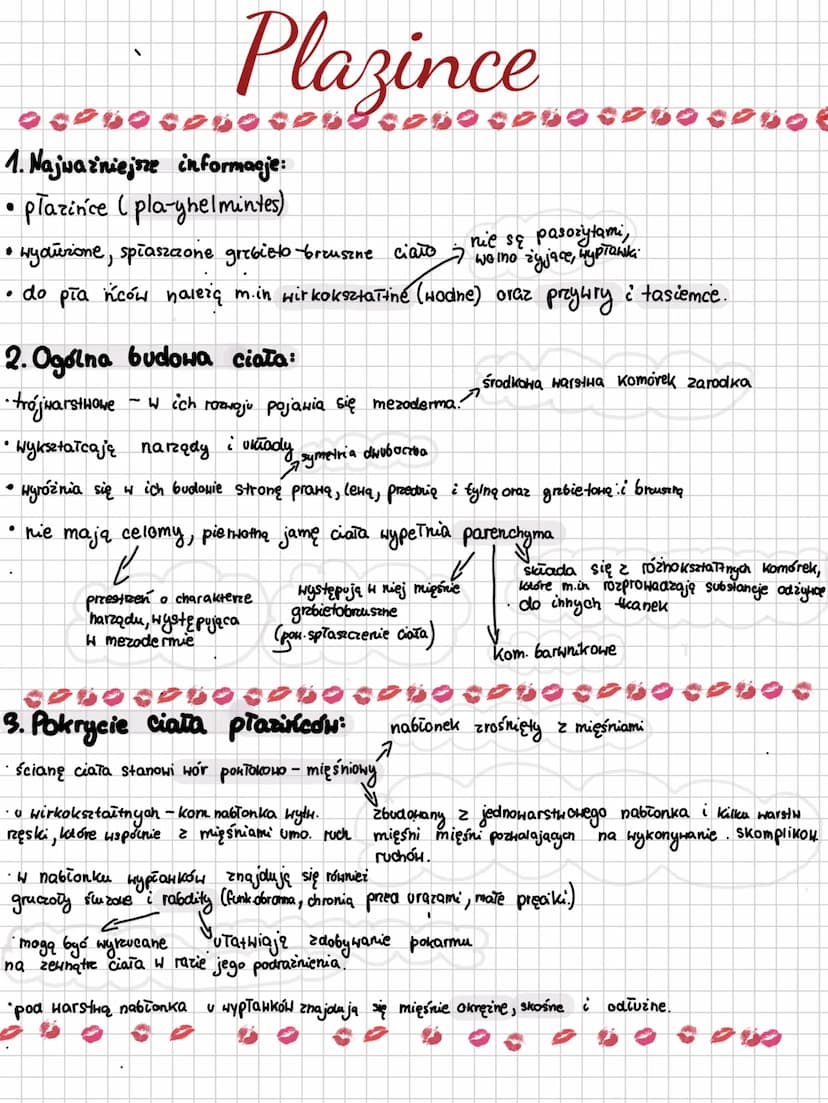 Plazince
1. Najważniejsze informacje:
• płazińce (pla-yhelmintes)
• wydłużone, spłaszczone grzbieto-brzuszne ciało
nie są pasożytami,
wolno żyjące, wypławki
• do pła ńców należą m.in wirkokształtne (wodne) oraz przywry i tasiemce.
2. Ogólna budowa ciała:
środkowa warstwa komórek zarodka
• trójwarstwowe - w ich rozwoju pojawia się mezoderma.
• wykształcają narządy i układy
symetria dwuboczna
• wyróżnia się w ich budowie stronę prawą, lewą, przednią i tylną oraz grzbietową i brzuszną
• nie mają celomy, pierwotną jamę ciała wypełnia parenchyma
przestrzeń o charakterze
narządu, występująca
w mezodermie
występują w niej mięśnie
grzbietobrzuszne
(pow. spłaszczenie ciała)
składa się z różnokształtnych komórek,
które m.in rozprowadzają substancje odżywcze
do innych tkanek
kom. barwnikowe
3. Pokrycie ciała płazińców:
nabłonek zrośnięty z mięśniami
• ścianę ciała stanowi wór powłokowo-mięśniowy
zbudowany z jednowarstwowego nabłonka i kilku warstw
mięśni mięśni pozwalających na wykonywanie. skomplikow.
ruchów.
• u wirkokształtnych - kom. nabłonka wytw.
rzęski, które wspólnie z mięśniami umo. ruch
• w nabłonku wypławków znajdują się również
gruczoły śluzowe i rabdity (funk. obronna, chronią przed urazami, małe pręciki.)
• mogą być wyrzucane
na zewnątrz ciała w razie jego podrażnienia.
ułatwiają zdobywanie pokarmu
• pod warstwą nabłonka u wypławków znajdują się mięśnie okrężne, skośne i odłużne.